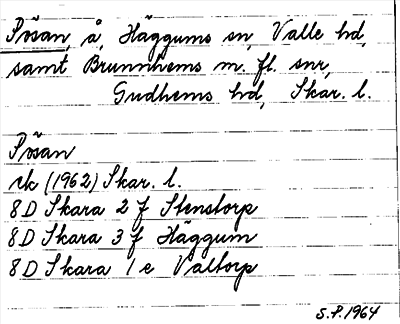 Pösan, å, Häggums sn, Valle hd,
samt Brunnhems m. fl. snr,
Gudhems hd, Skar. l.
Pösan
rk (1962) Skar. l.
8D Skara 2 f Stenstorp
8D Skara 3 f Häggum
8D Skara 1 e Valtorp
S.P. 1964